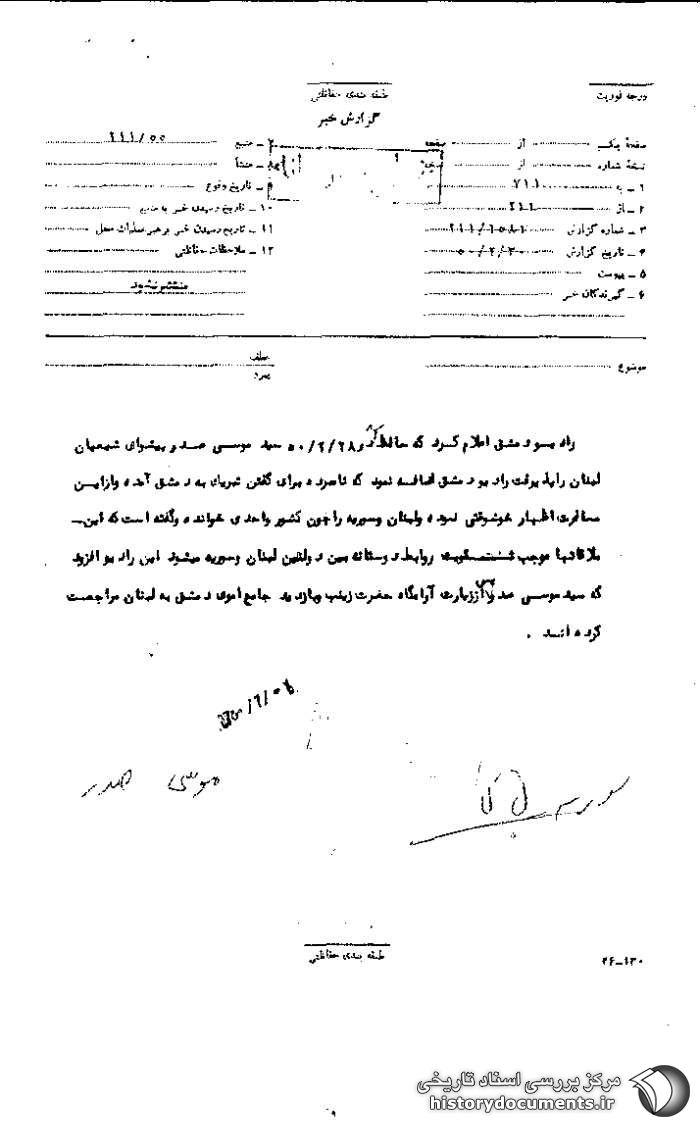 درجه فوریت
طبقه بندی حفاظتی
گزارش خبر
صفحهٔ یک از صفحه
نسخهٔ شماره از نسخه
۱ – به ۷۱۱
۲ – از ۲۱۱
۳ – شماره گزارش
۴ – تاریخ گزارش ۵۰/۲/۳۰
۵ – پیوست
۶ – گیرندگان خبر
۷ – منبع ۲۱۱/۵۵
۸ – منشأ
۹ – تاریخ وقوع
۱۰ – تاریخ رسیدن خبر به منبع
۱۱ – تاریخ رسیدن خبر به رهبر عملیات محل
۱۲ – ملاحظات حفاظتی
منتشر نشود
موضوع
عطف
پیرو
رادیو دمشق اعلام کرد که حافظ در ۵۰/۲/۲۸ سید موسی صدر پیشوای شیعیان
لبنان را پذیرفت رادیو دمشق اضافه نمود که نامبرده برای گفتن تبریک به دمشق آمده و از این
مسافرت اظهار خوشوقتی نموده و لبنان و سوریه را چون کشور واحدی خوانده و گفته است که این
ملاقاتها موجب تقویت روابط دوستانه بین دولتین لبنان و سوریه میشود این رادیو افزود
که سید موسی صدر پس از زیارت آرامگاه حضرت زینب و بازدید جامع اموی دمشق به لبنان مراجعت
کرده اند .
موسی صدر
طبقه بندی حفاظتی
۲۶–۱۳۰
مرکز بررسی اسناد تاریخی
historydocuments.ir